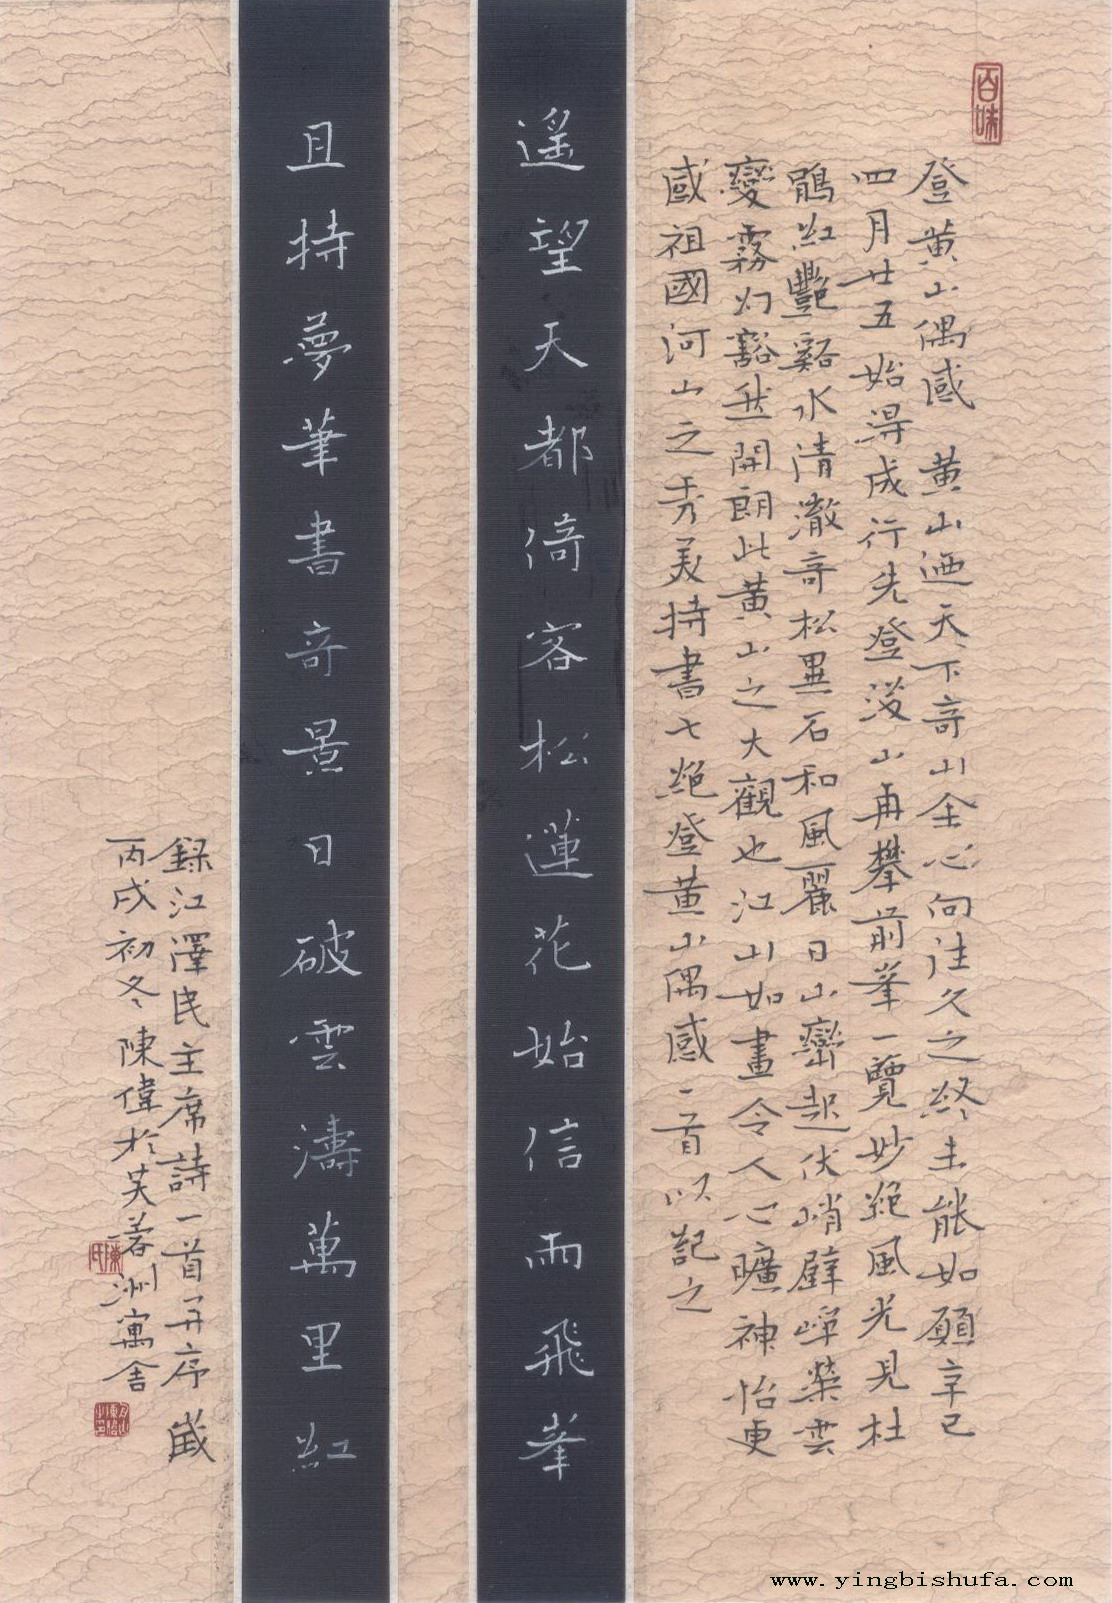 百味
登黃山偶感 黃山迺天下奇山全心向往久之終未能如願辛巳
四月廿五始得成行先登後山再攀前峯一覽妙絕風光見杜
鵑紅艷谿水清澈奇松異石和風麗日山巒起伏峭壁崢嶸雲
變霧幻豁然開朗此黃山之大觀也江山如畫令人心曠神怡更
感祖國河山之秀美持書七絕登黃山偶感一首以記之
遙望天都倚客松蓮花始信兩飛峯
且持夢筆書奇景日破雲濤萬里紅
錄江澤民主席詩一首并序 歲
丙戌初冬陳偉於芙蓉洲寓舍
陳氏
www.yingbishufa.com